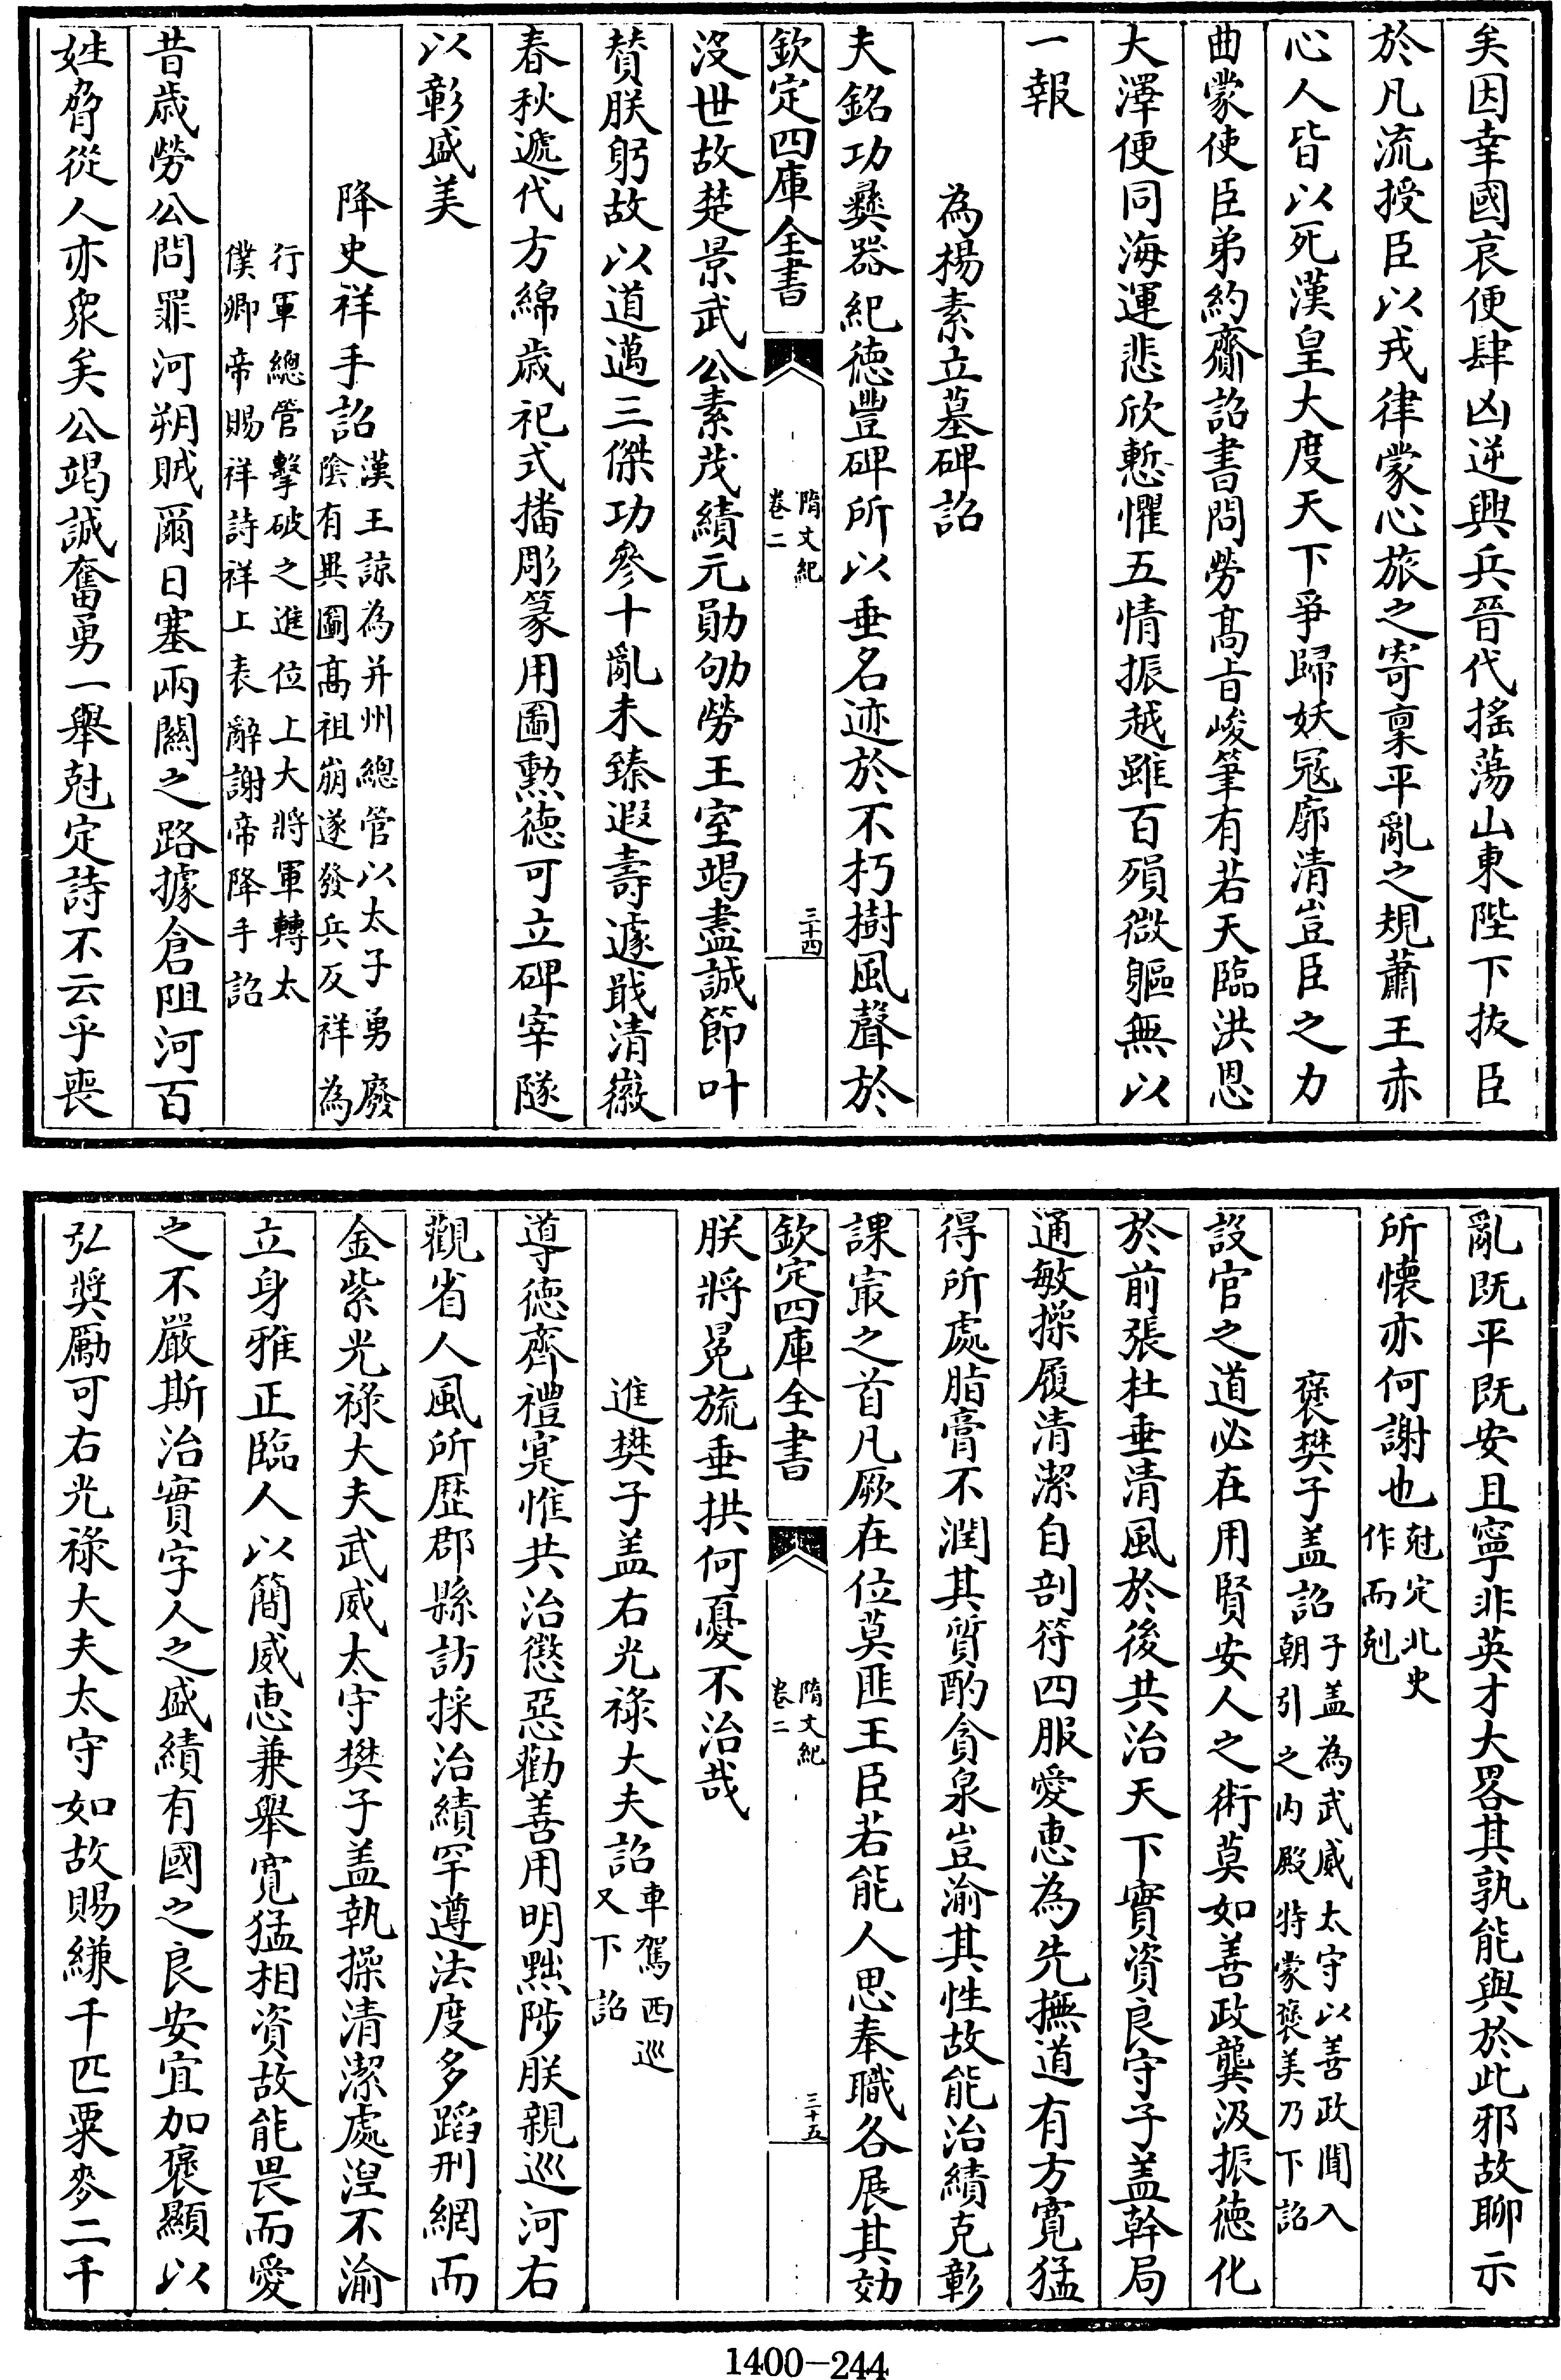 矣因幸國哀便肆凶逆興兵晉代搖蕩山東陛下抜臣
於凡流授臣以戎律蒙心旅之寄稟平亂之規蕭王赤
心人皆以死漢皇大度天下爭歸妖冦廓清豈臣之力
曲蒙使臣弟約齎詔書問勞髙㫖峻筆有若天臨洪恩
大澤便同海運悲欣慙懼五情振越雖百殞微軀無以
一報
為楊素立墓碑詔
夫銘功彞器紀徳豐碑所以垂名迹於不朽樹風聲於
欽定四庫全書
隋文紀
卷二
三十四
沒世故楚景武公素茂績元勛劬勞王室竭盡誠節叶
賛朕躬故以道邁三傑功參十亂未臻遐壽遽戢清徽
春秋遞代方綿歳祀式播彫篆用圖勲徳可立碑宰隧
以彰盛美
降史祥手詔
漢王諒為并州總管以太子勇廢
隂有異圖髙祖崩遂發兵反祥為
行軍總管擊破之進位上大將軍轉太
僕卿帝賜祥詩祥上表辭謝帝降手詔
昔歳勞公問罪河朔賊爾日塞兩闗之路據倉阻河百
姓脅從人亦衆矣公竭誠奮勇一舉尅定詩不云乎喪
亂既平既安且寧非英才大畧其孰能與於此邪故聊示
所懷亦何謝也
尅定北史
作而剋
褒樊子盖詔
子盖為武威太守以善政聞入
朝引之内殿特蒙褒美乃下詔
設官之道必在用賢安人之術莫如善政龔汲振徳化
於前張杜垂清風於後共治天下實資良守子盖幹局
通敏操履清潔自剖符四服愛惠為先撫道有方寛猛
得所處脂膏不潤其質酌貪泉豈渝其性故能治績克彰
課㝡之首凡厥在位莫匪王臣若能人思奉職各展其効
欽定四庫全書
隋文紀
卷二
三十五
朕將冕旒垂拱何憂不治哉
進樊子盖右光祿大夫詔
車駕西巡
又下詔
導徳齊禮寔惟共治懲惡勸善用明黜陟朕親巡河右
觀省人風所歴郡縣訪採治績罕遵法度多蹈刑網而
金紫光祿大夫武威太守樊子盖執操清潔處湼不渝
立身雅正臨人以簡威惠兼舉寛猛相資故能畏而愛
之不嚴斯治實字人之盛績有國之良安宜加褒顯以
弘奬勵可右光祿大夫太守如故賜縑千匹粟麥二千
1400-244